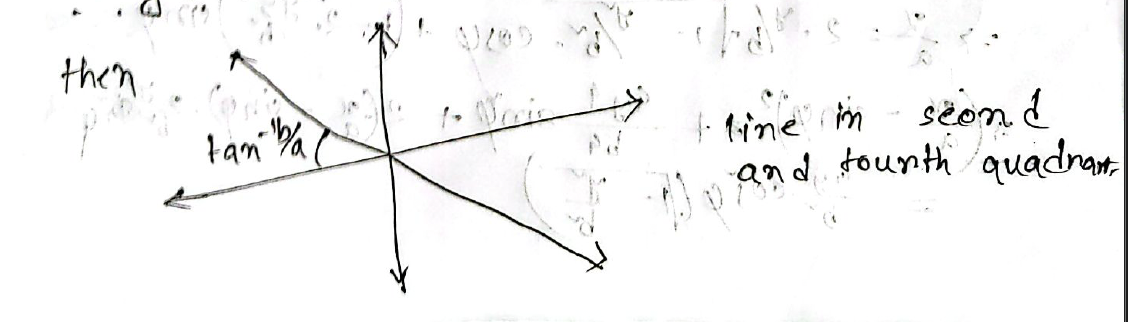 then
tan⁻¹b/a
line in seond
and fourth quadrant